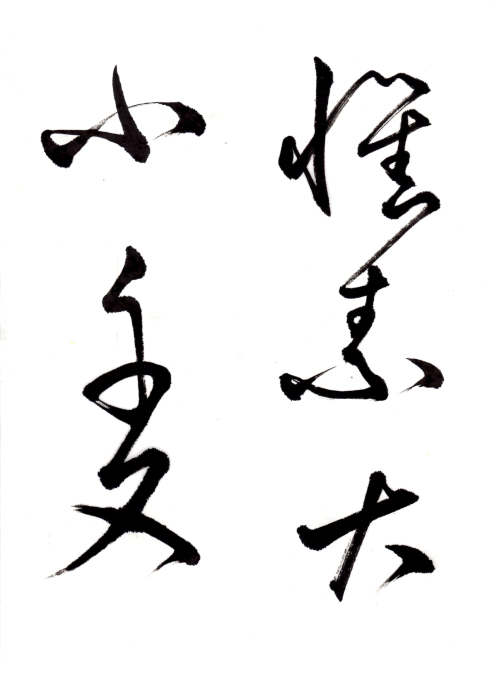 懷素大
小千文